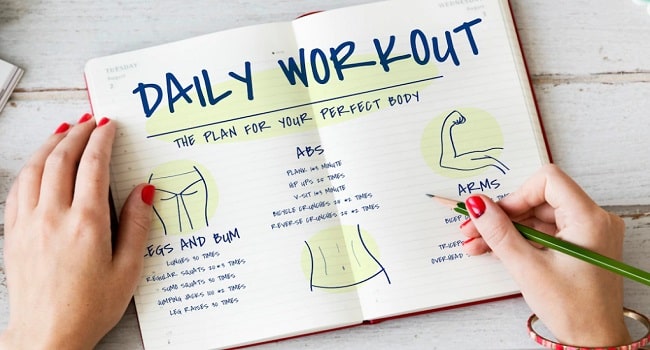 TUESDAY
August
DAILY WORKOUT
THE PLAN FOR YOUR PERFECT BODY
LEGS AND BUM
LUNGES 30 TIMES
REGULAR SQUATS 20*3 TIMES
SUMO SQUATS 30 TIMES
JUMPING JACKS 100 *2 TIMES
LEG RAISES 30 TIMES
ABS
PLANK 1*3 MINUTE
HIP UPS 20 TIMES
V-SIT 1*3 MINUTE
BICYCLE CRUNCHES 20 *2 TIMES
REVERSE CRUNCHES 20 *2 TIMES
ARMS
BICEP
TRICEPS
OVERHEAD